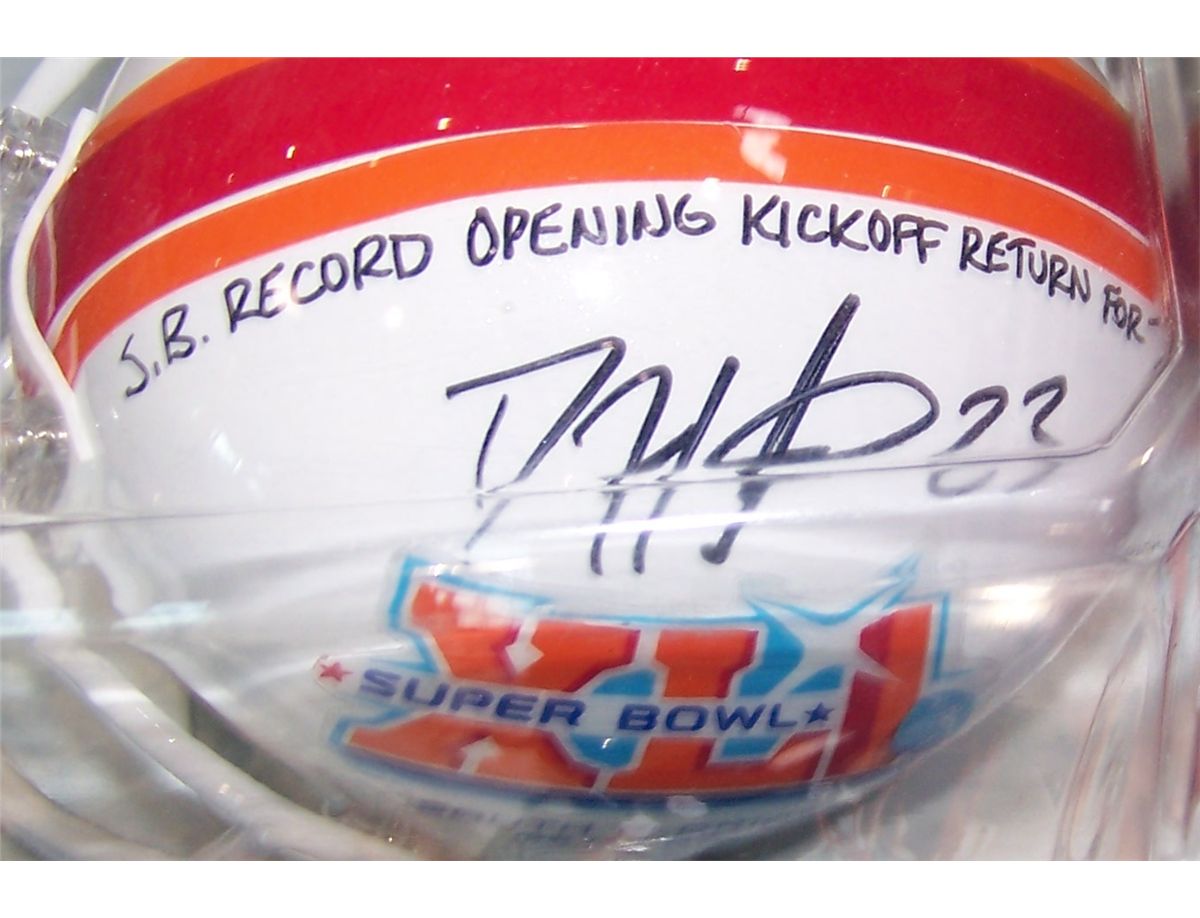 S.B. RECORD OPENING KICKOFF RETURN FOR-
23
XLI
SUPER BOWL